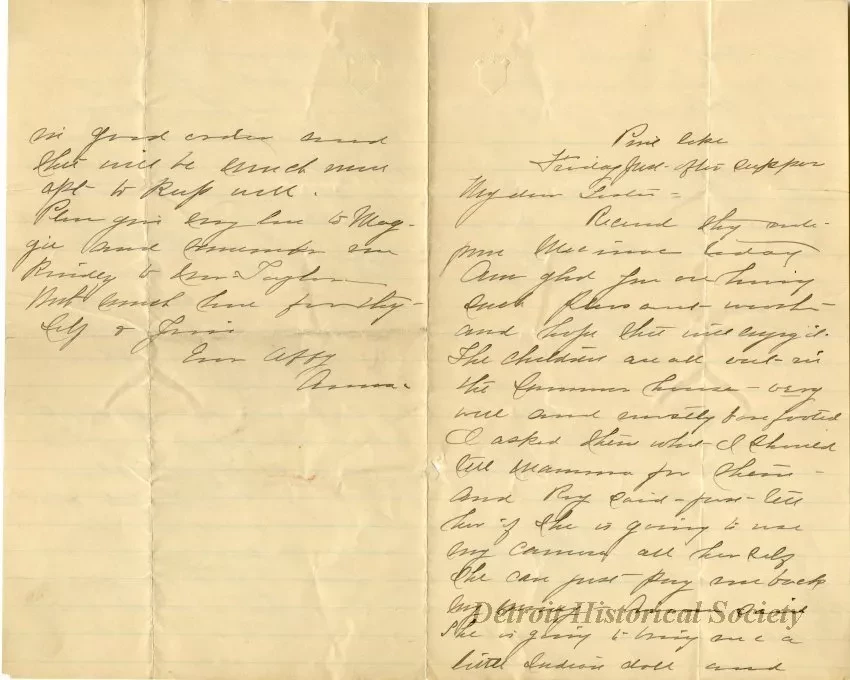 in good order and
that will be much more
apt to keep well.
Please give my love to Mag-
gie and remember me
Kindly to Mr Taylor
With much love for thy-
self & Jessie
Ever Affy
Anna.
Pine Lake
Friday Just after supper
My dear Sister =
Received thy
today
Am glad you are having
such pleasant weath-
and hope thee will enjoy it.
The children are all out in
the Summer house - very
well and mostly barefooted
I asked them what I should
tell Mamma for them -
and Roy said - just tell
her if she is going to use
my camera all her self
she can just pay me back
my money
Detroit Historical Society
She is going to bring me a
little Indian doll and